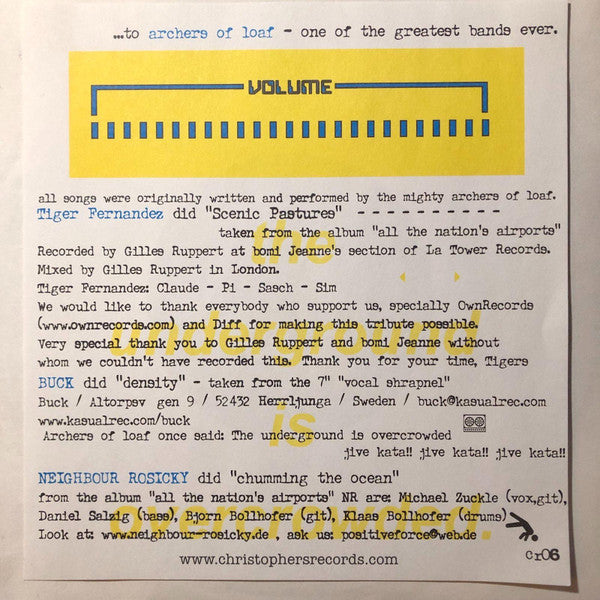 ...to archers of loaf - one of the greatest bands ever.
VOLUME
all songs were originally written and performed by the mighty archers of loaf.
Tiger Fernandez did "Scenic Pastures" - - - - - - - - - - -
taken from the album "all the nation's airports"
Recorded by Gilles Ruppert at bomi Jeanne's section of La Tower Records.
Mixed by Gilles Ruppert in London.
Tiger Fernandez: Claude - Pi - Sasch - Sim
We would like to thank everybody who support us, specially OwnRecords
(www.ownrecords.com) and Diff for making this tribute possible.
Very special thank you to Gilles Ruppert and bomi Jeanne without
whom we couldn't have recorded this. Thank you for your time, Tigers
BUCK did "density" - taken from the 7" "vocal shrapnel"
Buck / Altorpsv gen 9 / 52432 Herrljunga / Sweden / buck@kasualrec.com
www.kasualrec.com/buck
Archers of loaf once said: The underground is overcrowded
jive kata!! jive kata!! jive kata!!
NEIGHBOUR ROSICKY did "chumming the ocean"
from the album "all the nation's airports" NR are: Michael Zuckle (vox,git),
Daniel Salzig (bass), Bjorn Bollhofer (git), Klaas Bollhofer (drums)
Look at: www.neighbour-rosicky.de , ask us: positiveforce@web.de
www.christophersrecords.com
cr06
the
underground
is
overcrowded.